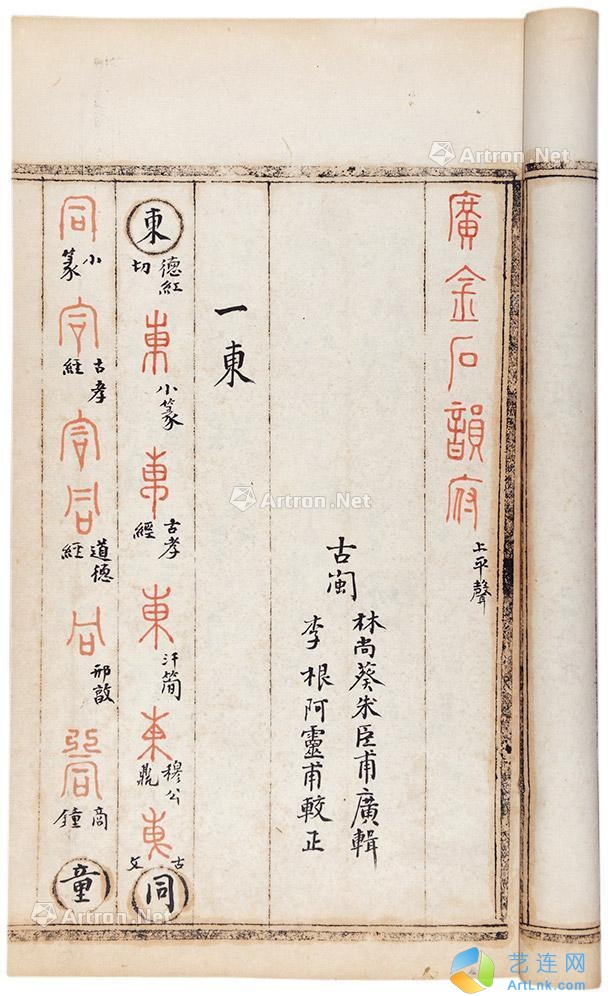 廣金石韻府 上平聲
古閩
林尚葵朱臣甫廣輯
李根阿靈甫較正
一東
東 德紅切 東 小篆 東 古孝經 東 汗簡 東 穆公鼎 東 古文 同
同 小篆 同 古孝經 同 同 道德經 同 邢敦 同 商鐘 童
Artron.Net
Artron.Net
Artron.Net
Artron.Net
艺连网
ArtLnk.com